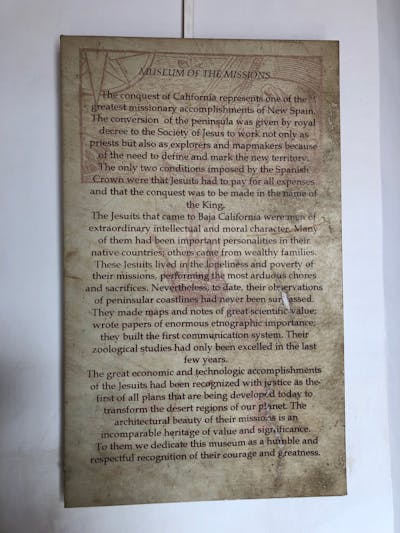 MUSEUM OF THE MISSIONS
The conquest of California represents one of the
greatest missionary accomplishments of New Spain.
The conversion of the peninsula was given by royal
decree to the Society of Jesus to work not only as
priests but also as explorers and mapmakers because
of the need to define and mark the new territory.
The only two conditions imposed by the Spanish
Crown were that Jesuits had to pay for all expenses
and that the conquest was to be made in the name of
the King.
The Jesuits that came to Baja California were men of
extraordinary intellectual and moral character. Many
of them had been important personalities in their
native countries; others came from wealthy families.
These Jesuits lived in the loneliness and poverty of
their missions, performing the most arduous chores
and sacrifices. Nevertheless, to date, their observations
of peninsular coastlines had never been surpassed.
They made maps and notes of great scientific value;
wrote papers of enormous etnographic importance;
they built the first communication system. Their
zoological studies had only been excelled in the last
few years.
The great economic and technologic accomplishments
of the Jesuits had been recognized with justice as the
first of all plans that are being developed today to
transform the desert regions of our planet. The
architectural beauty of their missions is an
incomparable heritage of value and significance.
To them we dedicate this museum as a humble and
respectful recognition of their courage and greatness.